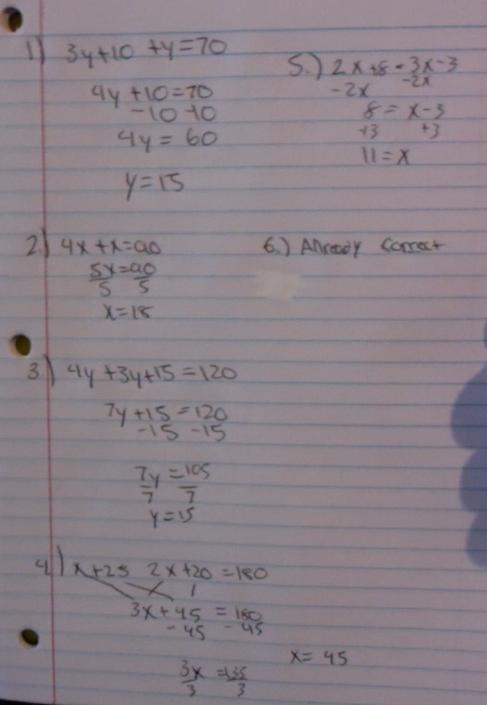 1) 3y+10 +y=70
4y+10=70
-10 -10
4y = 60
y=15
2.) 4x+x=90
5x=90
5 5
x=18
3.) 4y+3y+15=120
7y+15=120
-15 -15
7y=105
7 7
y=15
4.) x+25 2x+20=180
3x+45=180
-45 -45
3x=135
3 3
x=45
5.) 2x+8=3x-3
-2x -2x
8=x-3
+3 +3
11=x
6.) Already correct